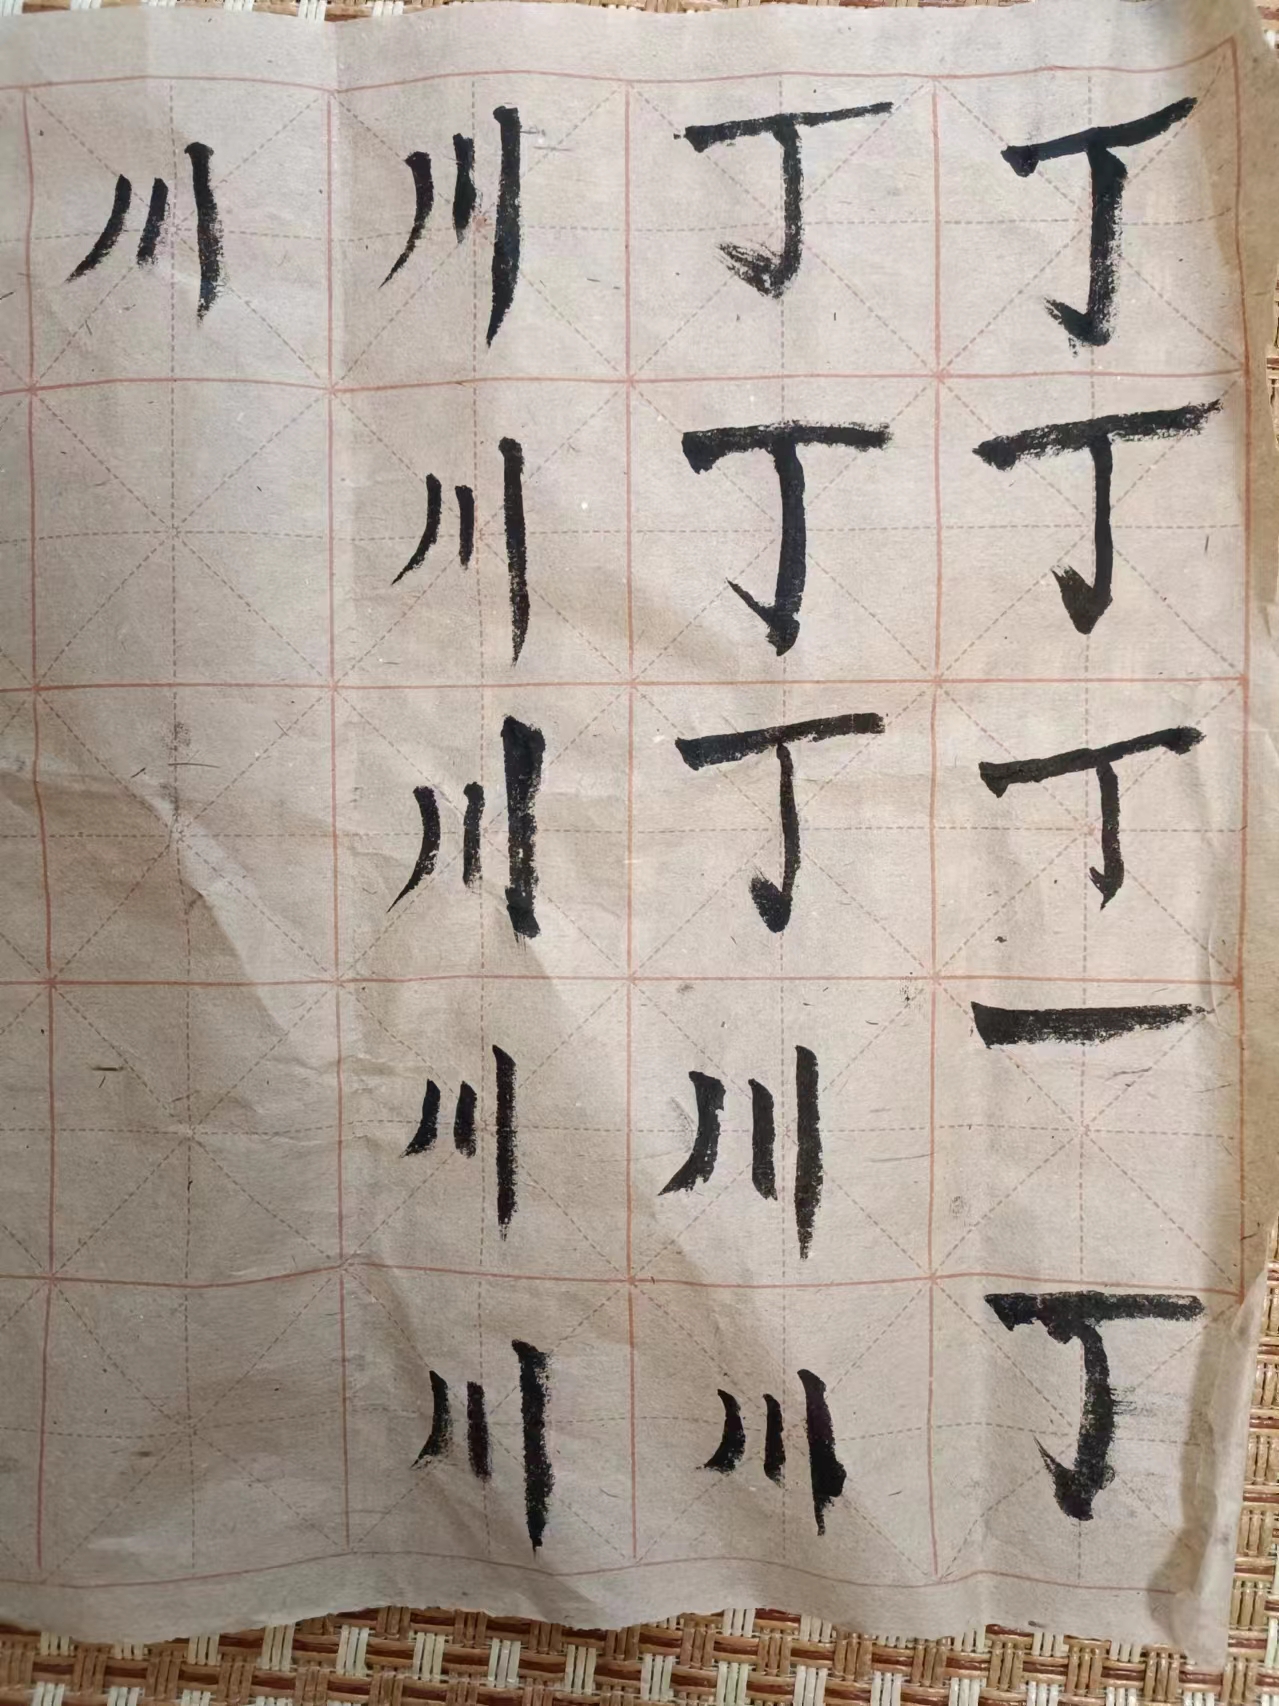 丁丁丁一丁
丁丁丁川川
川川川川川
川